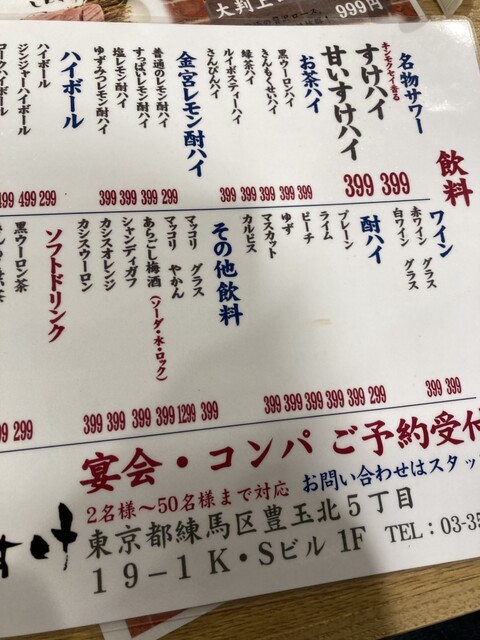 大判上
999円
飲料
名物サワー
キンモクセイ香る
すけハイ 399
甘いすけハイ 399
お茶ハイ
黒ウーロンハイ 399
きんもくせいハイ 399
緑茶ハイ 399
ルイボスティーハイ 399
さんぴんハイ 399
金宮レモン酎ハイ
普通のレモン酎ハイ 299
すっぱいレモン酎ハイ 399
塩レモン酎ハイ 399
ゆずみつレモン酎ハイ 399
ハイボール
ハイボール 299
ジンジャーハイボール 499
コークハイボール 499
ワイン
赤ワイン グラス 399
白ワイン グラス 399
酎ハイ
プレーン 299
ライム 399
ピーチ 399
ゆず 399
マスカット 399
カルピス 399
その他飲料
マッコリ グラス 399
マッコリ やかん 1299
あらごし梅酒(ソーダ・水・ロック) 399
シャンディガフ 399
カシスオレンジ 399
カシスウーロン 399
ソフトドリンク
黒ウーロン茶 299
宴会・コンパ ご予約受付
2名様〜50名様まで対応 お問い合わせはスタッ
東京都練馬区豊玉北5丁目
19-1 K・Sビル 1F TEL:03-35